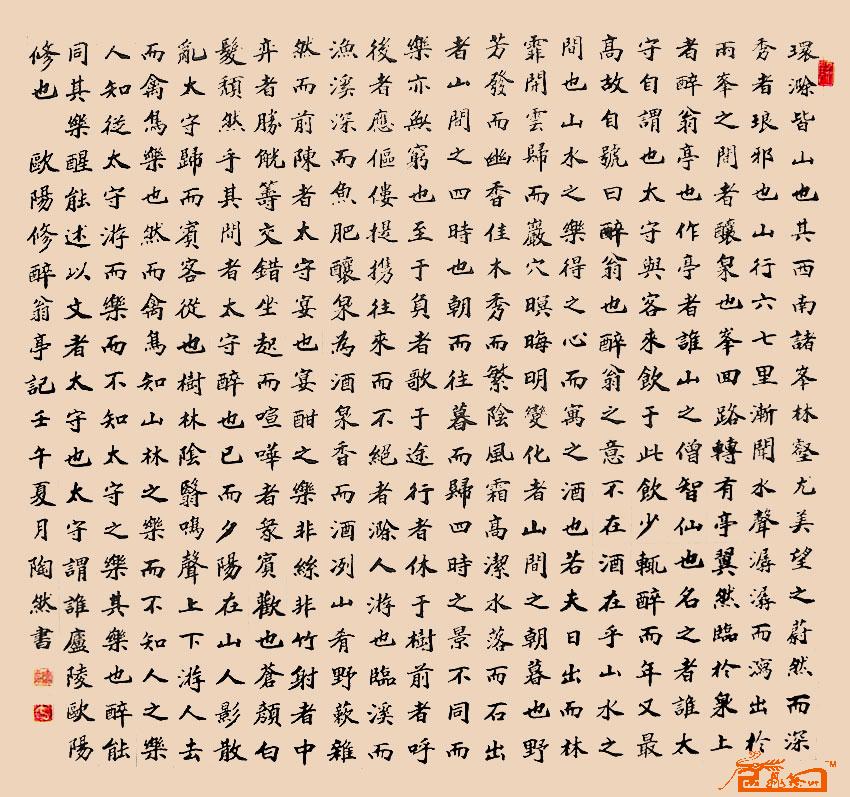 環滁皆山也其西南諸峯林壑尤美望之蔚然而深
秀者琅邪也山行六七里漸聞水聲潺潺而瀉出於
兩峯之間者釀泉也峯回路轉有亭翼然臨於泉上
者醉翁亭也作亭者誰山之僧智仙也名之者誰太
守自謂也太守與客來飲于此飲少輒醉而年又最
高故自號曰醉翁也醉翁之意不在酒在乎山水之
間也山水之樂得之心而寓之酒也若夫日出而林
霏開雲歸而巖穴暝晦明變化者山間之朝暮也野
芳發而幽香佳木秀而繁陰風霜高潔水落而石出
者山間之四時也朝而往暮而歸四時之景不同而
樂亦無窮也至于負者歌于途行者休于樹前者呼
後者應傴僂提携往來而不絕者滁人游也臨溪而
漁溪深而魚肥釀泉為酒泉香而酒冽山肴野蔌雜
然而前陳者太守宴也宴酣之樂非絲非竹射者中
弈者勝觥籌交錯坐起而喧嘩者眾賓歡也蒼顏白
髮頹然乎其間者太守醉也已而夕陽在山人影散
亂太守歸而賓客從也樹林陰翳鳴聲上下游人去
而禽鳥樂也然而禽鳥知山林之樂而不知人之樂
人知從太守游而樂而不知太守之樂其樂也醉能
同其樂醒能述以文者太守也太守謂誰廬陵歐陽
修也 歐陽修醉翁亭記壬午夏月陶然書